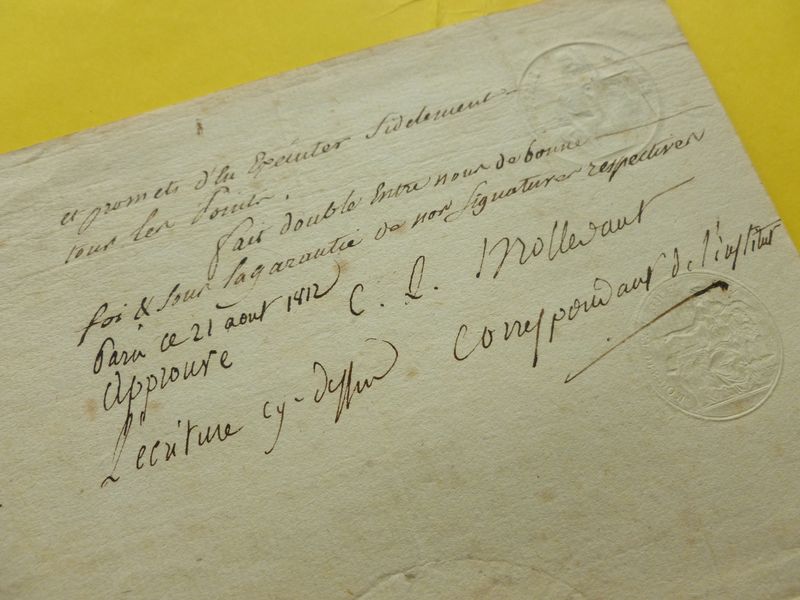 et promets d'en Exécuter fidelement
tous les points.
fait double Entre nous de bonne
foi & sous la garantie de nos signatures respectives
Paris ce 21 aout 1812
C. L. Mollevaut
approuvé
l'écriture cy-dessus correspondant de l'institut